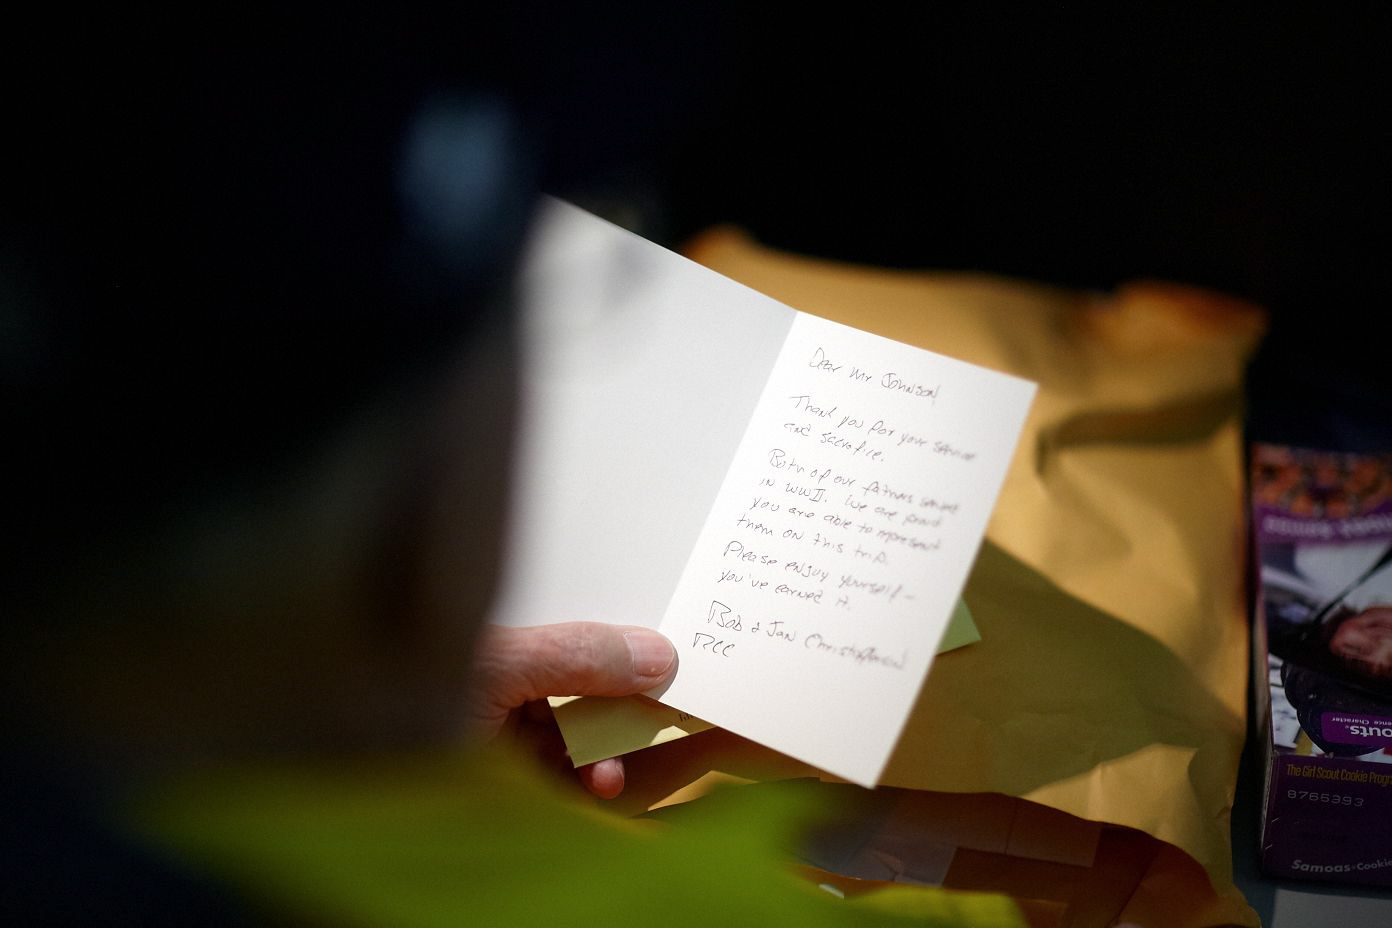 Dear Mr Johnson,
Thank you for your service
and sacrifice.
Both of our fathers served
in WWII. We are proud
you are able to represent
them on this trip.
Please enjoy yourself –
you've earned it.
Bob & Jan Christoffersen
outs
The Girl Scout Cookie Progr
8765393
Samoas Cookie